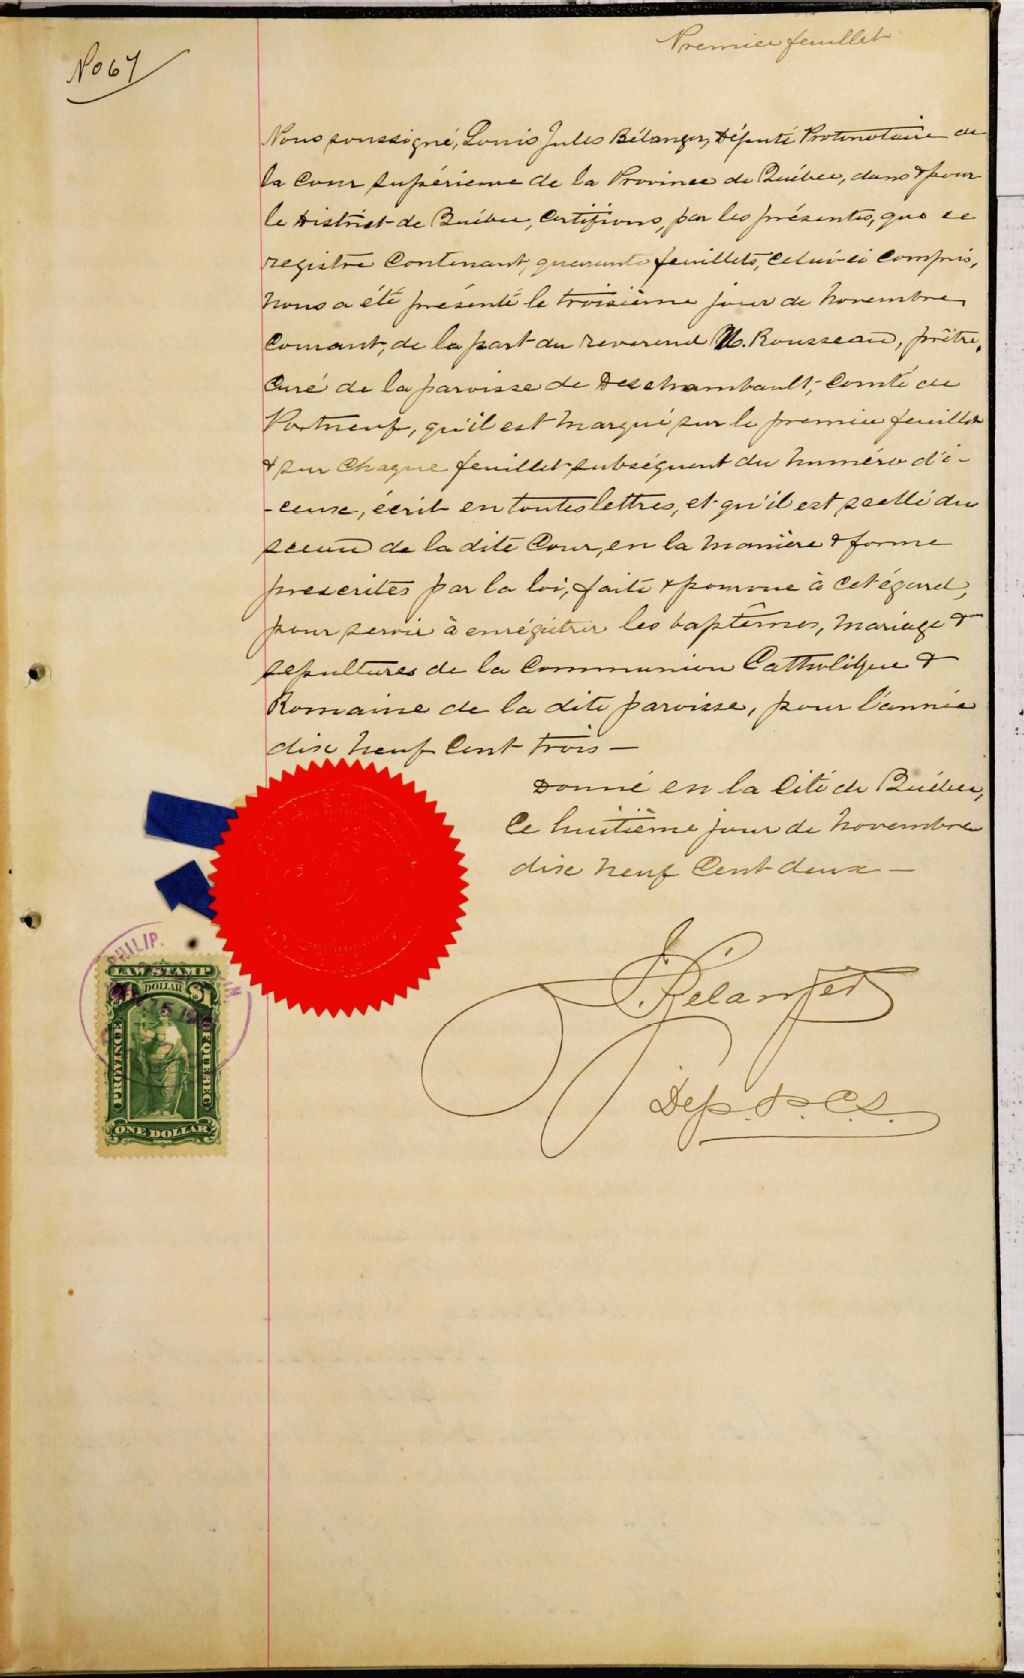 Premier feuillet
No 67
Nous soussigné, Louis Jules Bélanger, Député Protonotaire de
la Cour supérieure de la Province de Québec, dans & pour
le District de Québec, Certifions, par les présentes, que ce
registre Contenant, quarante feuillets, Celui-ci Compris,
nous a été présenté le troisième jour de Novembre
Courant, de la part du reverend N. Rousseau, prêtre,
Curé de la paroisse de Deschambault, Comté de
Portneuf, qu'il est marqué sur le premier feuillet
& sur Chaque feuillet subséquent du numéro d'i-
-ceux, écrit en toutes lettres, et qu'il est scellé du
sceau de la dite Cour, en la manière & forme
prescrites par la loi, faite & pourvue à Cet égard,
pour servir à enrégistrer les baptêmes, mariage &
sepultures de la Communion Catholique &
Romaine de la dite paroisse, pour l'année
dix neuf Cent trois —
Donné en la Cité de Québec,
Ce huitième jour de Novembre
dix neuf Cent deux —
J. Bélanger
Dep. P. C. S.
PHILIP.
LAW STAMP
$1 DOLLAR $1
PROVINCE
DE QUEBEC
ONE DOLLAR